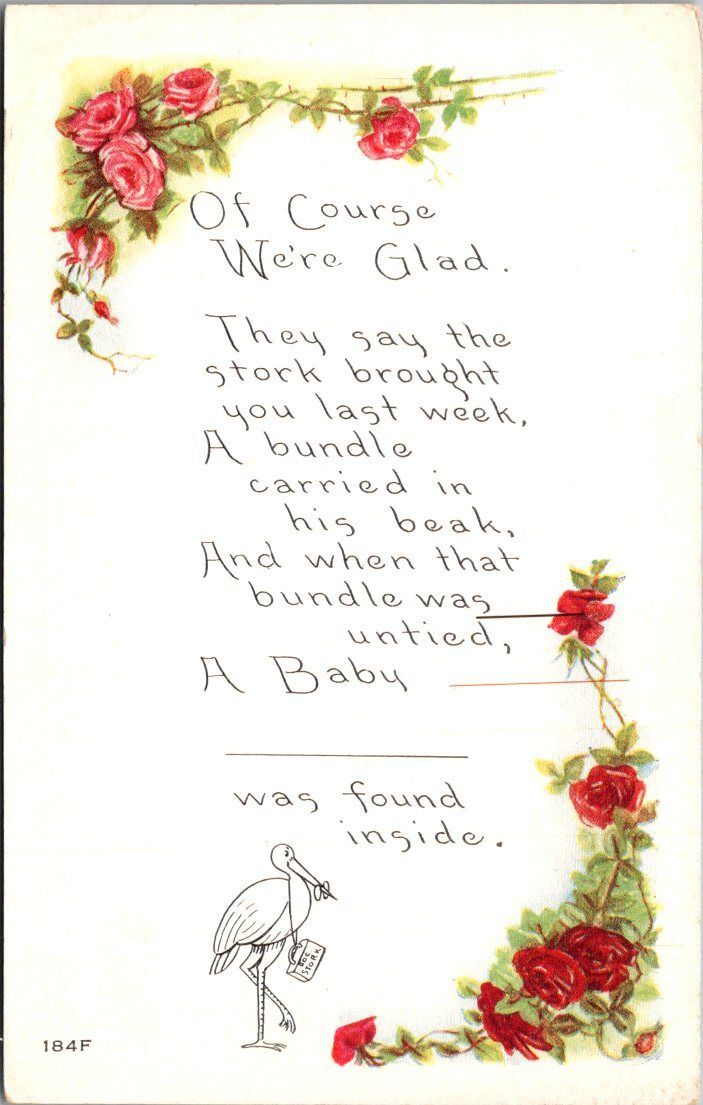 Of Course
We're Glad.
They say the
stork brought
you last week,
A bundle
carried in
his beak,
And when that
bundle was
untied,
A Baby
was found
inside.
DOC
STORK
184F